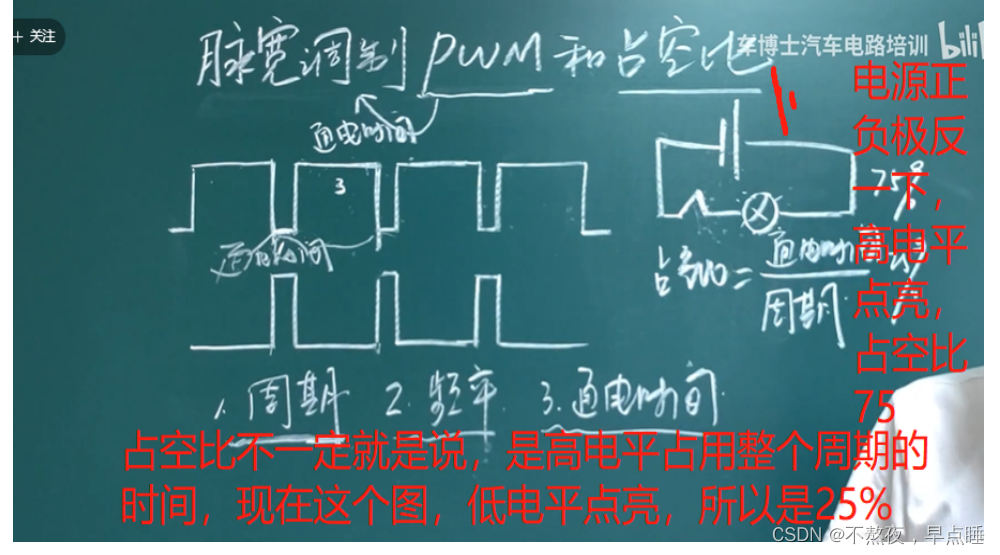 + 关注
脉宽调制 PWM 和占空比
车博士汽车电路培训 bili
通电时间
3
通电时间
75%
占空比 = 通电时间
周期
1. 周期 2. 频率 3. 通电时间
电源正
负极反
一下，
高电平
点亮，
占空比
75
占空比不一定就是说，是高电平占用整个周期的
时间，现在这个图，低电平点亮，所以是25%
CSDN @不熬夜，早点睡